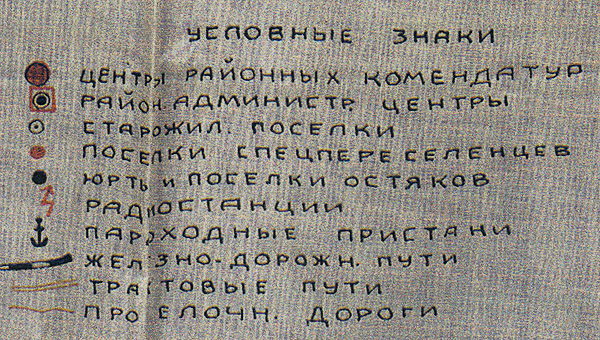 УСЛОВНЫЕ ЗНАКИ
ЦЕНТРЫ РАЙОННЫХ КОМЕНДАТУР
РАЙОН. АДМИНИСТР. ЦЕНТРЫ
СТАРОЖИЛ. ПОСЕЛКИ
ПОСЕЛКИ СПЕЦПЕРЕСЕЛЕНЦЕВ
ЮРТЫ И ПОСЕЛКИ ОСТЯКОВ
РАДИОСТАНЦИИ
ПАРОХОДНЫЕ ПРИСТАНИ
ЖЕЛЕЗНО-ДОРОЖН. ПУТИ
ТРАКТОВЫЕ ПУТИ
ПРОСЕЛОЧН. ДОРОГИ